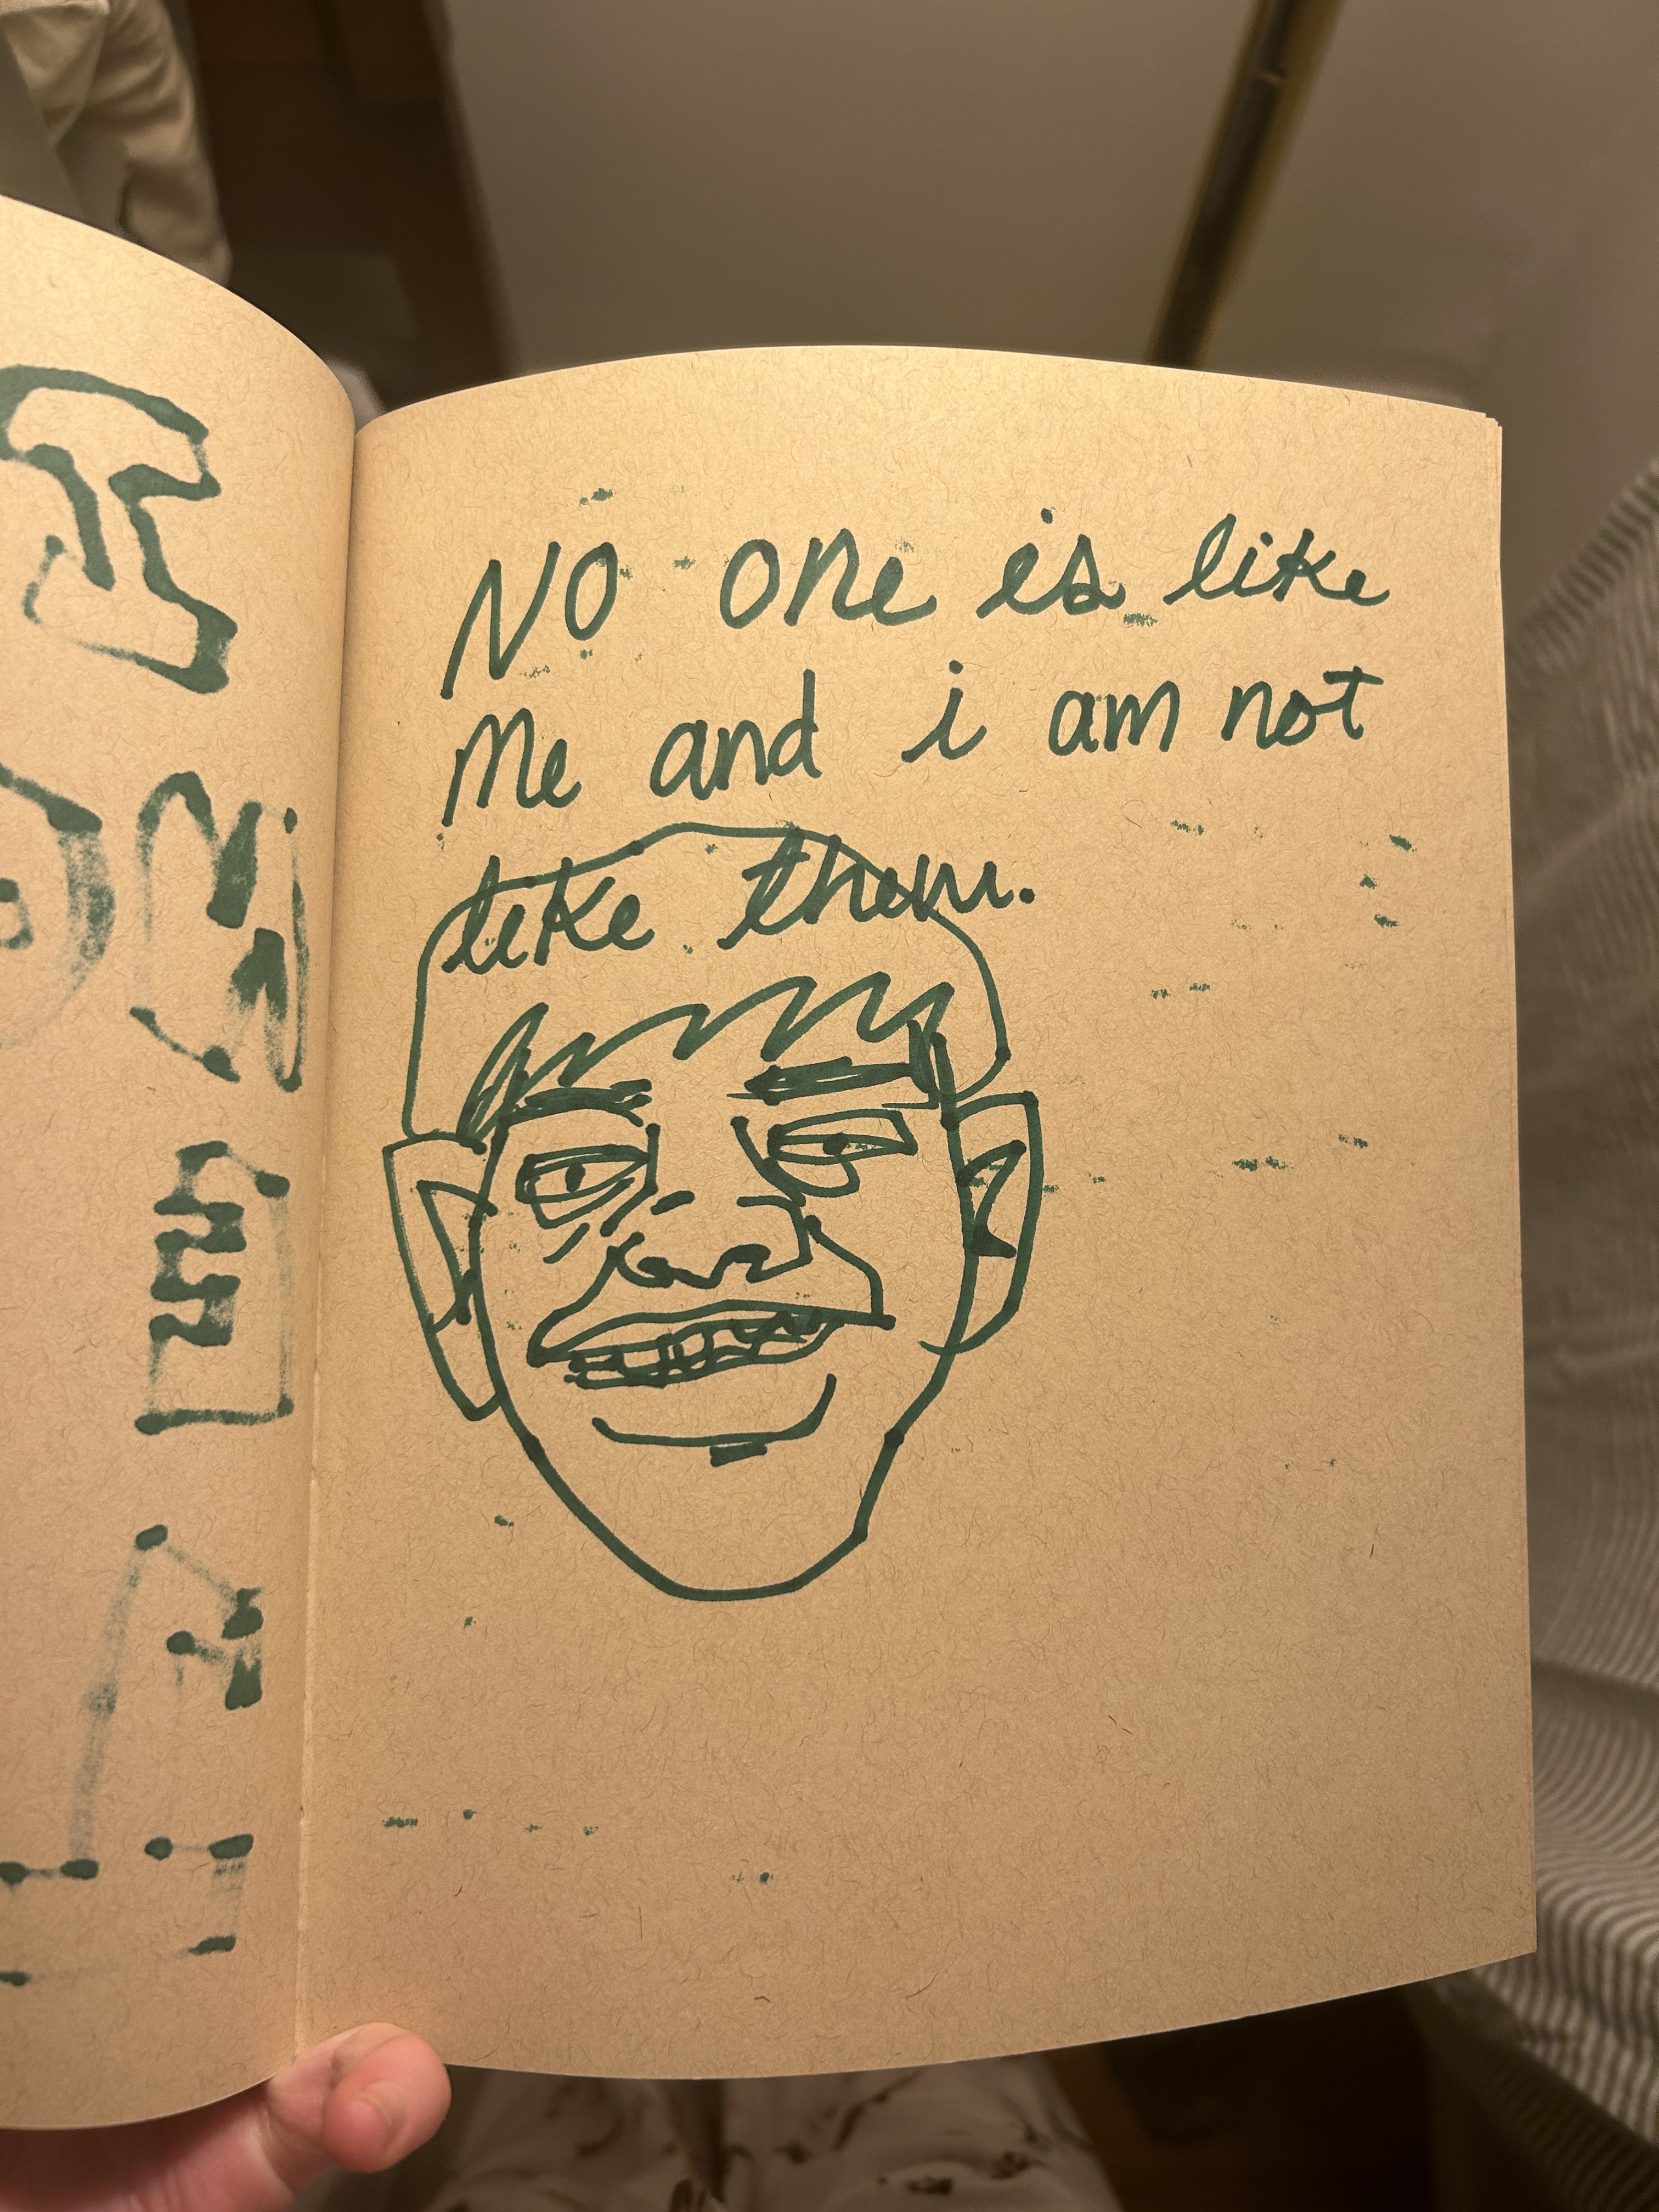 NO one is like
Me and i am not
like them.